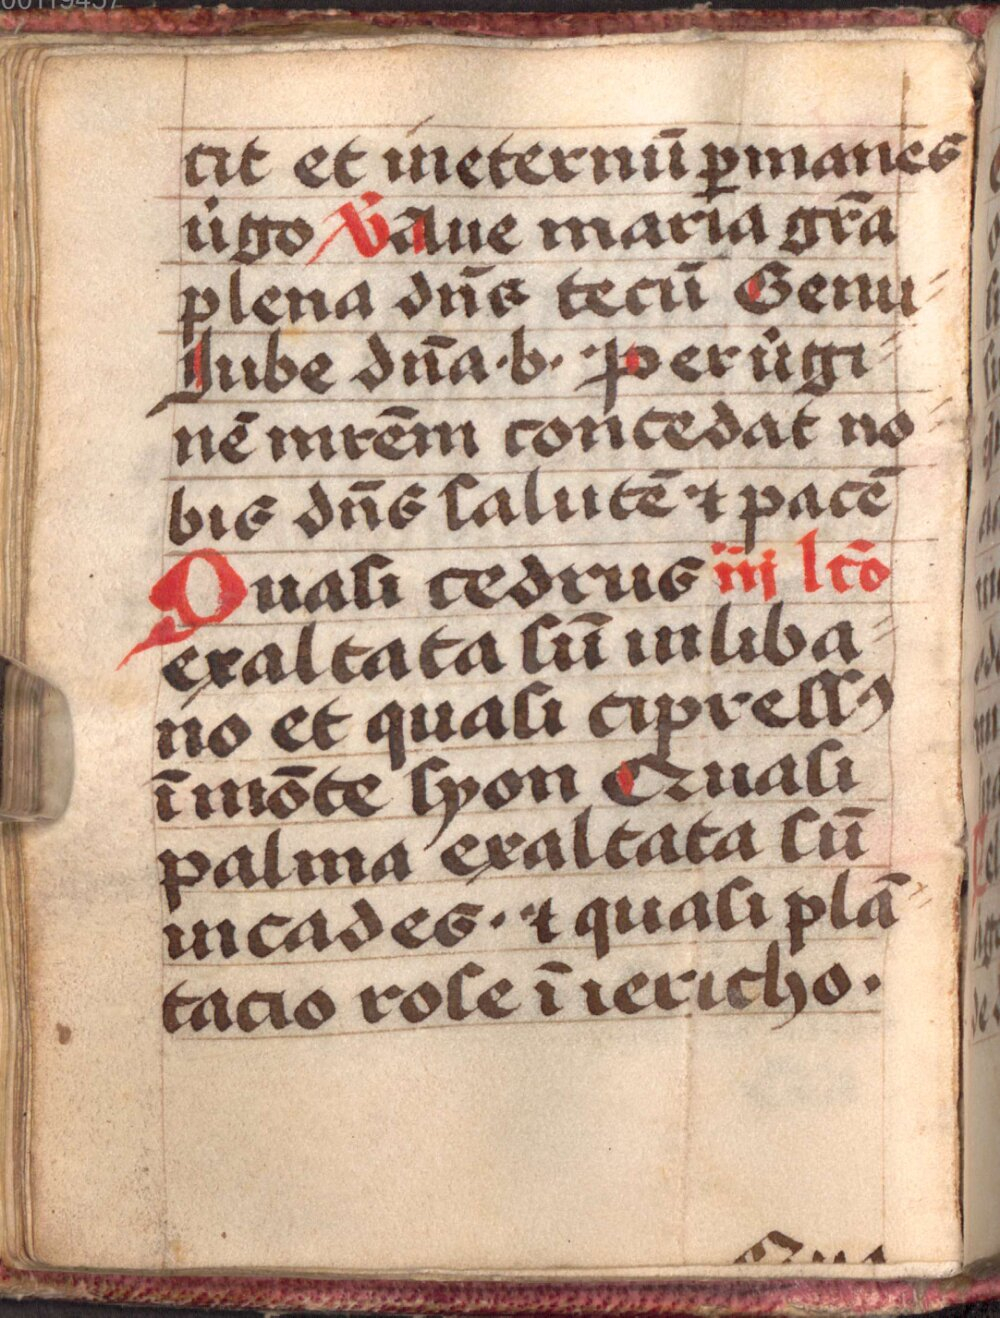 cit et ineternū ꝑmanes
v̇go ℣ aue maria gr̄a
plena dn̄s tecū Genu⸗
Jube dn̄a·b· Per v̇gi⸗
nē mrēm concedat no⸗
bis dn̄s salutē ⁊ pacē
Quasi cedrus iiij lcō
exaltata sū in liba⸗
no et quasi cipressꝯ
ī mōte syon Quasi
palma exaltata sū
in cades· ⁊ quasi plā⸗
tacio rose ī iericho·